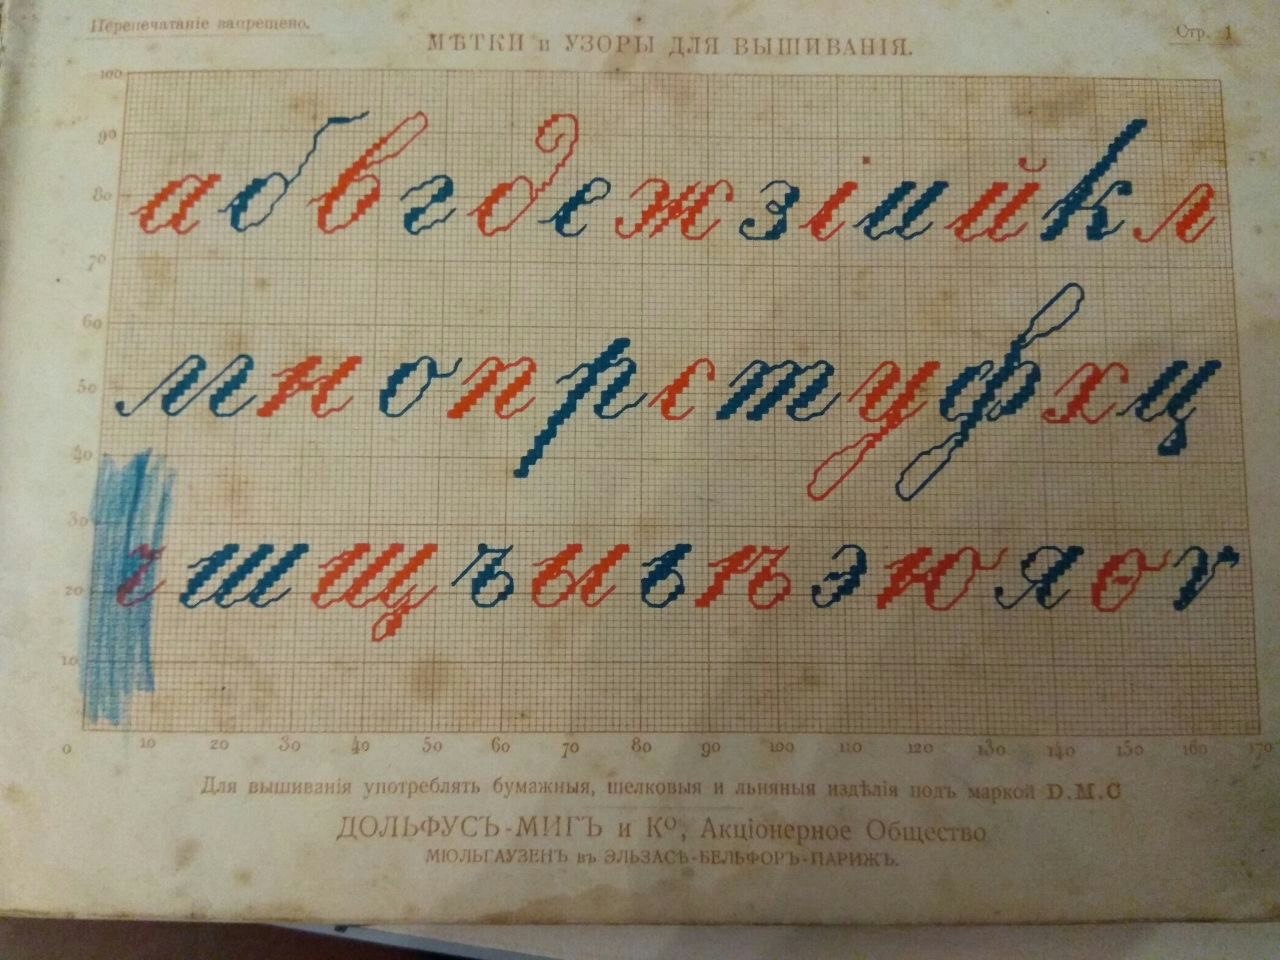 Перепечатаніе запрещено.
Стр. 1
МѢТКИ и УЗОРЫ ДЛЯ ВЫШИВАНІЯ.
100
90
80
70
60
50
40
30
20
10
а б в г д е ж з і и й к л
м н о п р с т у ф х ц
ч ш щ ъ ы ь ѣ э ю я ѳ ѵ
0 10 20 30 40 50 60 70 80 90 100 110 120 130 140 150 160 170
Для вышиванія употреблять бумажныя, шелковыя и льняныя издѣлія подъ маркой D.M.C
ДОЛЬФУСЪ-МИГЪ и Кº, Акціонерное Общество
МЮЛЬГАУЗЕНЪ въ ЭЛЬЗАСѢ-БЕЛЬФОРЪ-ПАРИЖЪ.